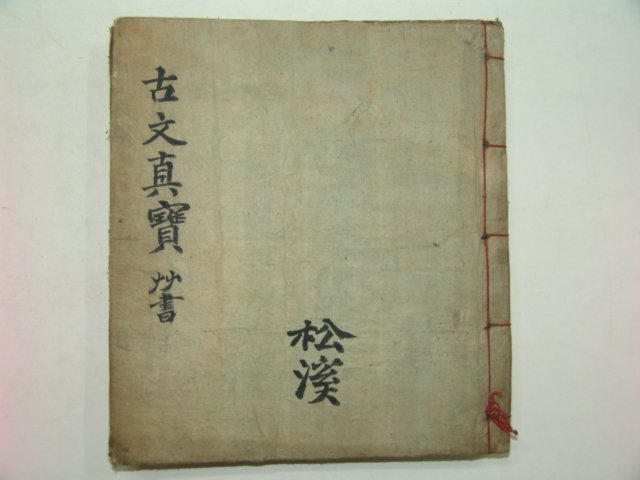 古文真寶 艸書
松溪